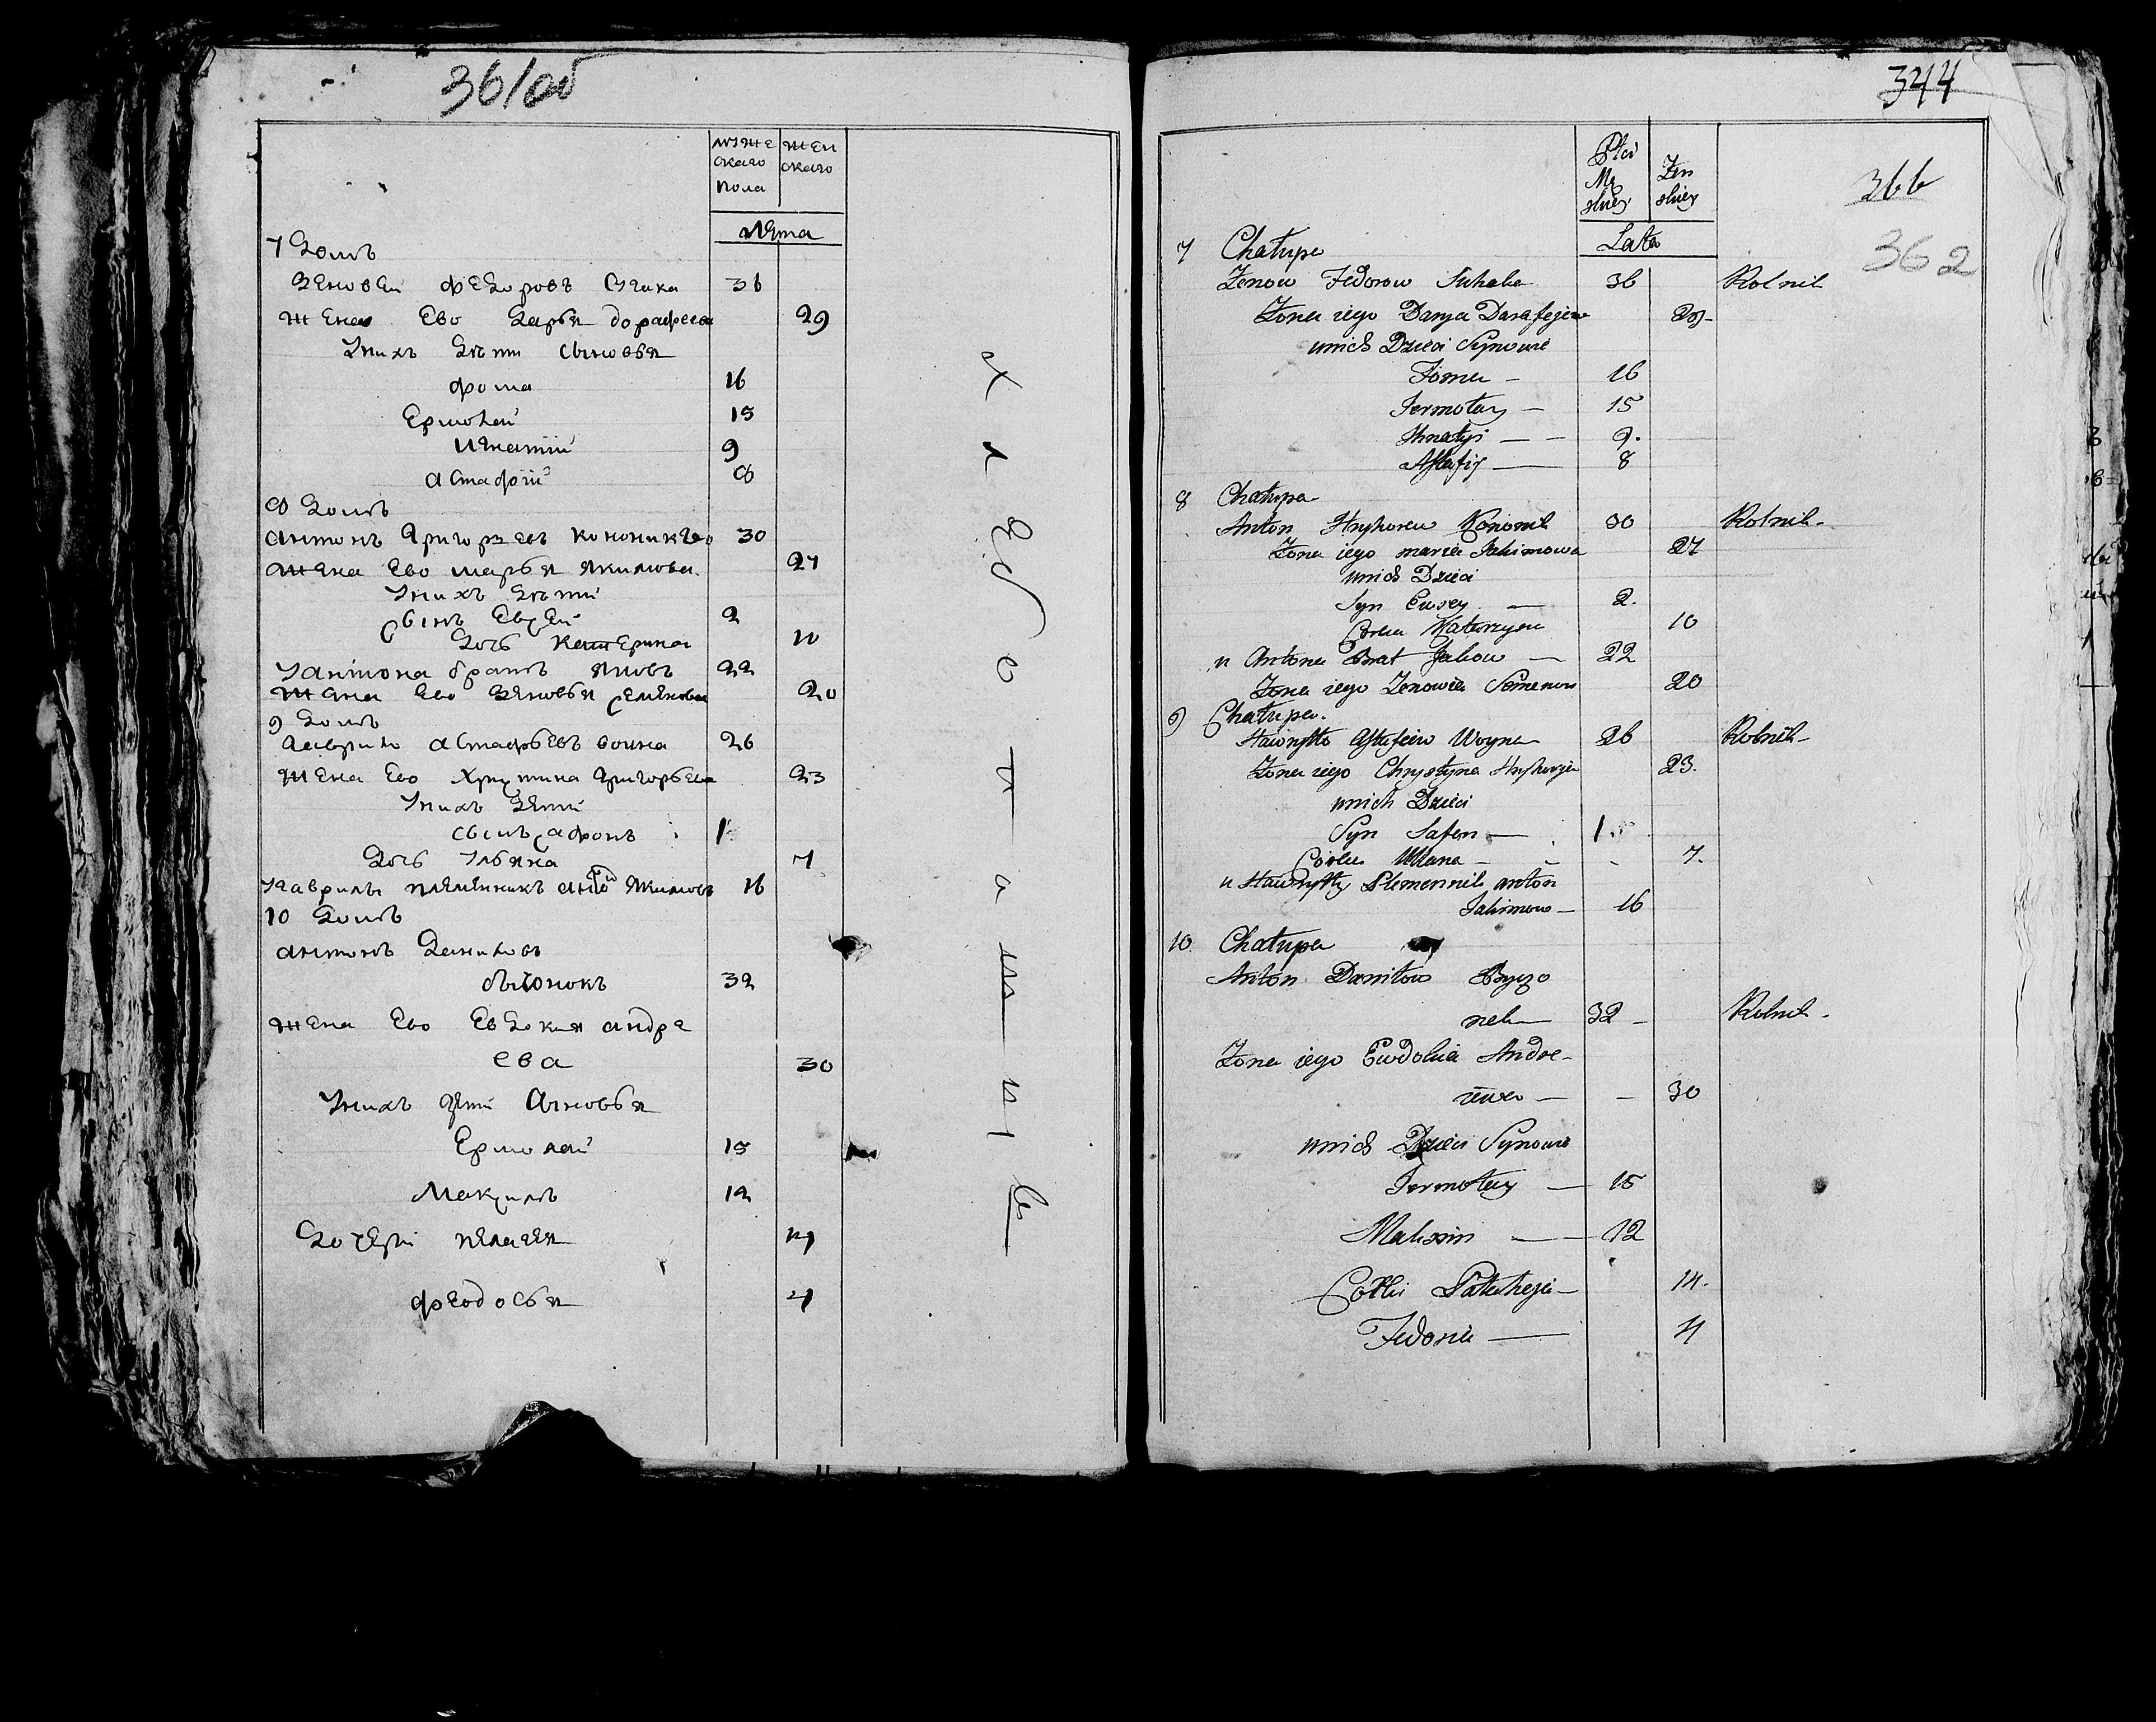 361об
муже
скаго
пола
жен
скаго
лѣта
7 Домъ
Зеновей Федоровъ 36
жена Ево Дарья Дорафеева 29
Унихъ дѣти сыновья
Фома 16
Ермолай 15
Игнатий 9
Астафий 8
8 Домъ
Антонъ Григорьевъ 30
жена Ево Марья Якимова 27
Унихъ дѣти
сынъ Евсей 2
дочь Катерина 10
У Антона братъ Яковъ 22
жена Ево Зеновья Семенова 20
9 Домъ
Гаврило Астафьевъ Война 26
жена Ево Христина Григорьева 23
Унихъ дѣти
сынъ Сафонъ 1
дочь Ульяна 7
У Гаврилы племянникъ Антонъ Якимовъ 16
10 Домъ
Антонъ Даниловъ
32
жена Ево Евдокия Андре
ева 30
Унихъ дѣти сыновья
Ермолай 15
Максимъ 12
дочери Пелагея 14
Феодосья 4
хлебопашецъ
344
366
362
Płci
Mę
skiey
Zen
skiey
Lata
7 Chałupa
Zenow Fedorow 36 Rolnik
Zona iego Darya Darafejewa 29
unich Dzieci Synowie
Foma — 16
Jermołay — 15
Hnatyi — 9.
Astafiy — 8
8 Chałupa
Anton Hryhorew Kononik 30 Rolnik
Zona iego maria Jakimowa 27
unich Dzieci
Syn Ewsey — 2.
Corka Katerzyna 10
u Antona Brat Jakow — 22
Zona iego Zenowia Semenow 20
9 Chałupa.
Hawryło Astafiew Woyna 26 Rolnik
Zona iego Chrystyna Hryhorjew 23.
unich Dzieci
Syn Safon — 1
Córka Ulana — 7.
u Hawryły Plemennik anton
Jakimow — 16
10 Chałupa
Anton Daniłow Byczo
nek 32 — Rolnik
Zona iego Ewdokia Andre-
iewa — 30
unich Dzieci Synowie
Jermołay — 15
Maksim — 12
Corki Pałaheja — 14.
Fedosia — 4